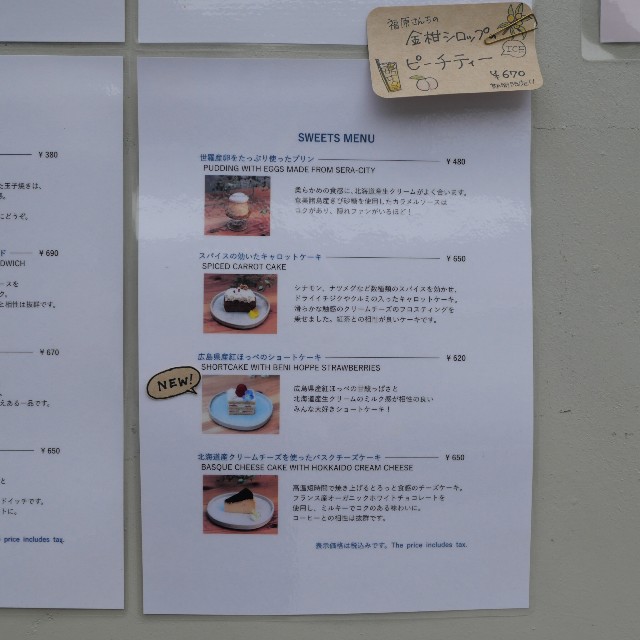 福原さんちの
金柑シロップ
ピーチティー
ICE
¥670
SWEETS MENU
世羅産卵をたっぷり使ったプリン ¥480
PUDDING WITH EGGS MADE FROM SERA-CITY
柔らかめの食感に、北海道産生クリームがよく合います。
奄美諸島産きび砂糖を使用したカラメルソースは
コクがあり、隠れファンがいるほど！
スパイスの効いたキャロットケーキ ¥650
SPICED CARROT CAKE
シナモン、ナツメグなど数種類のスパイスを効かせ、
ドライイチジクやクルミの入ったキャロットケーキ。
滑らかな触感のクリームチーズのフロスティングを
乗せました。紅茶との相性が良いケーキです。
NEW!
広島県産紅ほっぺのショートケーキ ¥620
SHORTCAKE WITH BENI HOPPE STRAWBERRIES
広島県産紅ほっぺの甘酸っぱさと
北海道産生クリームのミルク感が相性の良い
みんな大好きショートケーキ！
北海道産クリームチーズを使ったバスクチーズケーキ ¥650
BASQUE CHEESE CAKE WITH HOKKAIDO CREAM CHEESE
高温短時間で焼き上げるとろっと食感のチーズケーキ。
フランス産オーガニックホワイトチョコレートを
使用し、ミルキーでコクのある味わいに。
コーヒーとの相性は抜群です。
表示価格は税込みです。The price includes tax.
¥380
た玉子焼きは、
にどうぞ。
ド ¥690
NDWICH
ースを
ク。
と相性は抜群です。
¥670
えある一品です。
¥650
と
ドイッチです。
トに。
price includes tax.